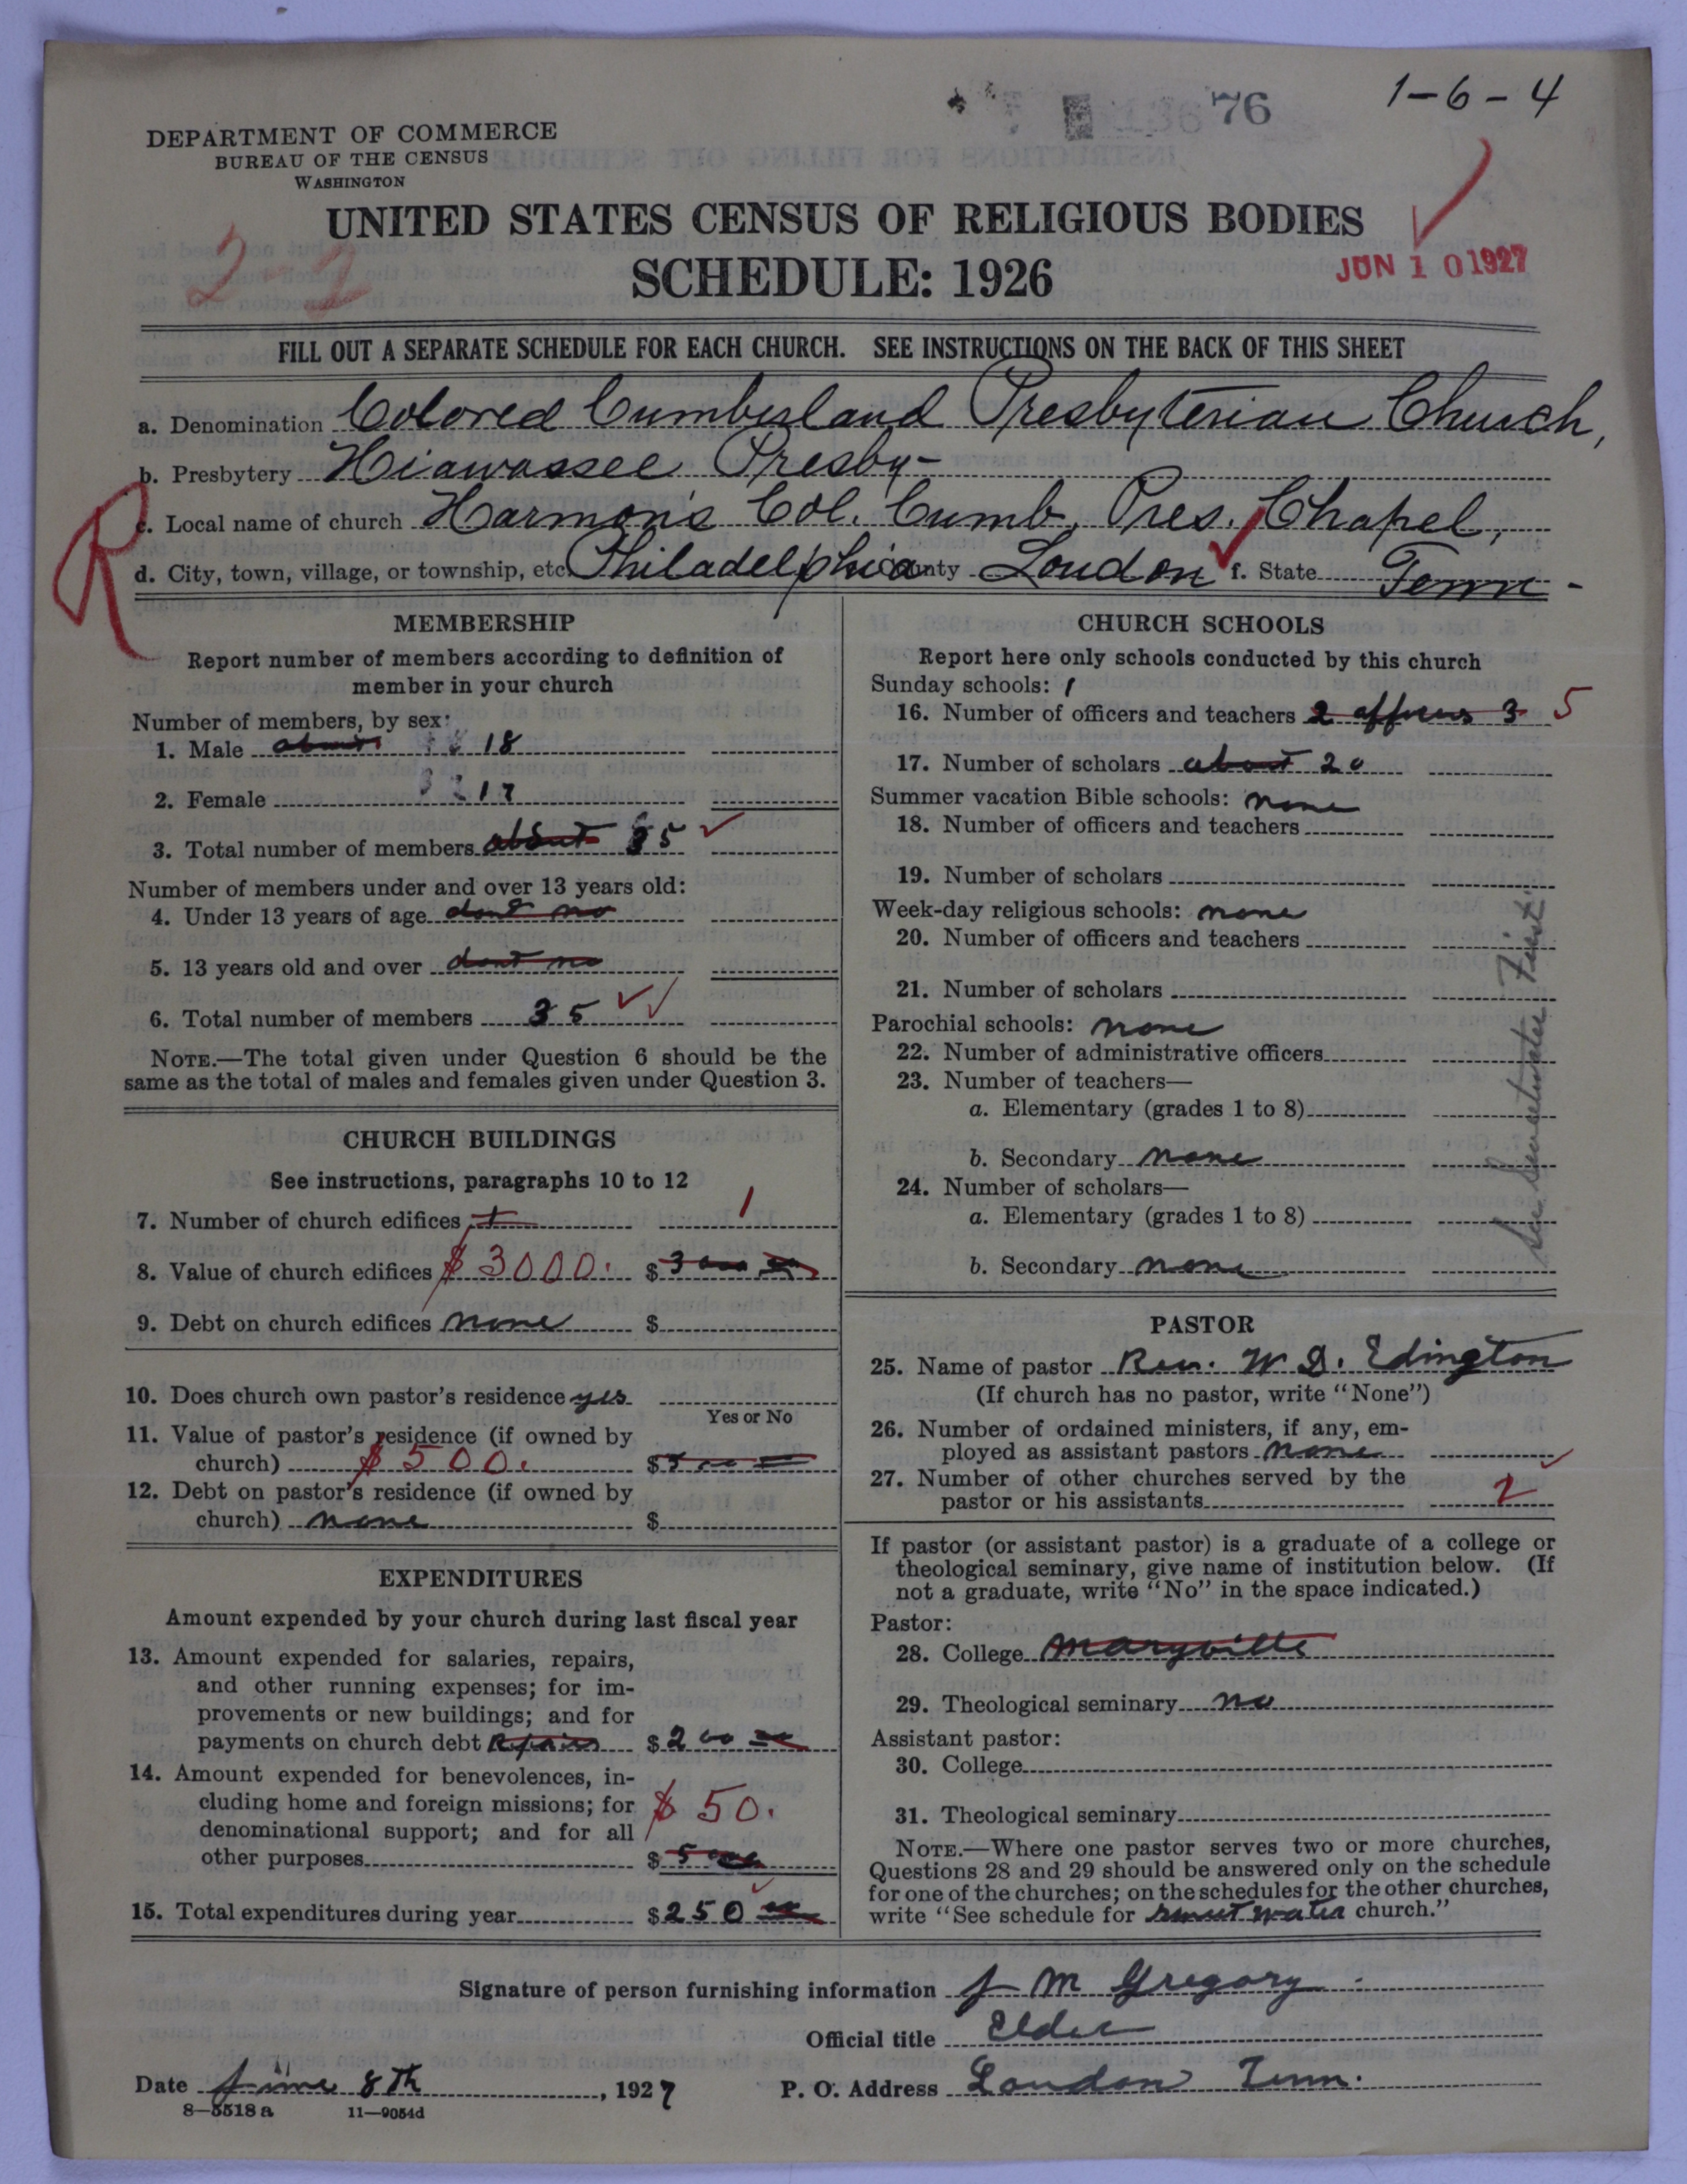 1-6-4
76
DEPARTMENT OF COMMERCE
BUREAU OF THE CENSUS
WASHINGTON
UNITED STATES CENSUS OF RELIGIOUS BODIES
SCHEDULE: 1926
2-2
JUN 10 1927
FILL OUT A SEPARATE SCHEDULE FOR EACH CHURCH. SEE INSTRUCTIONS ON THE BACK OF THIS SHEET
a. Denomination Colored Cumberland Presbyterian Church,
b. Presbytery Hiawassee Presby-
R
c. Local name of church Harmon's Col. Cumb. Pres. Chapel,
d. City, town, village, or township, etc. Philadelphia County Loudon f. State Tenn-
MEMBERSHIP
Report number of members according to definition of
member in your church
Number of members, by sex:
1. Male about 18
2. Female 17
3. Total number of members about 35
Number of members under and over 13 years old:
4. Under 13 years of age dont no
5. 13 years old and over dont no
6. Total number of members 35
NOTE.—The total given under Question 6 should be the
same as the total of males and females given under Question 3.
CHURCH BUILDINGS
See instructions, paragraphs 10 to 12
7. Number of church edifices 1 1
8. Value of church edifices $3000. $3000
9. Debt on church edifices none $
10. Does church own pastor's residence yes
Yes or No
11. Value of pastor's residence (if owned by
church) $500. $500
12. Debt on pastor's residence (if owned by
church) none $
EXPENDITURES
Amount expended by your church during last fiscal year
13. Amount expended for salaries, repairs,
and other running expenses; for im-
provements or new buildings; and for
payments on church debt Repairs $200 00
14. Amount expended for benevolences, in-
cluding home and foreign missions; for $50.
denominational support; and for all
other purposes $50
15. Total expenditures during year $250 00
CHURCH SCHOOLS
Report here only schools conducted by this church
Sunday schools: 1
16. Number of officers and teachers 2 officers 3 5
17. Number of scholars about 20
Summer vacation Bible schools: none
18. Number of officers and teachers
19. Number of scholars
Week-day religious schools: none
20. Number of officers and teachers
21. Number of scholars
Parochial schools: none
22. Number of administrative officers
23. Number of teachers—
a. Elementary (grades 1 to 8)
b. Secondary none
24. Number of scholars—
a. Elementary (grades 1 to 8)
b. Secondary none
See Sweetwater First.
PASTOR
25. Name of pastor Rev. W. D. Edington
(If church has no pastor, write "None")
26. Number of ordained ministers, if any, em-
ployed as assistant pastors none
27. Number of other churches served by the
pastor or his assistants 2
If pastor (or assistant pastor) is a graduate of a college or
theological seminary, give name of institution below. (If
not a graduate, write "No" in the space indicated.)
Pastor:
28. College Maryville
29. Theological seminary no
Assistant pastor:
30. College
31. Theological seminary
NOTE.—Where one pastor serves two or more churches,
Questions 28 and 29 should be answered only on the schedule
for one of the churches; on the schedules for the other churches,
write "See schedule for sweet water church."
Signature of person furnishing information J M Gregory
Official title Elder
Date June 8th, 1927 P. O. Address Loudon Tenn.
8—5518 a 11—9054d